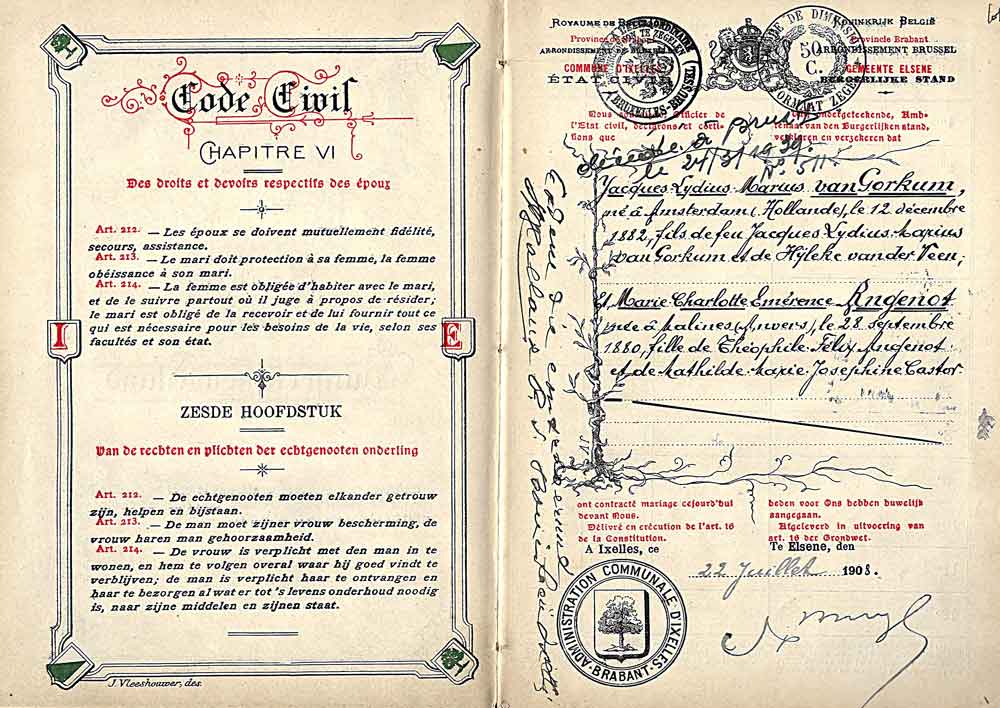 Code Civil
CHAPITRE VI
Des droits et devoirs respectifs des époux
Art. 212. — Les époux se doivent mutuellement fidélité,
secours, assistance.
Art. 213. — Le mari doit protection à sa femme, la femme
obéissance à son mari.
Art. 214. — La femme est obligée d'habiter avec le mari,
et de le suivre partout où il juge à propos de résider;
le mari est obligé de la recevoir et de lui fournir tout ce
qui est nécessaire pour les besoins de la vie, selon ses
facultés et son état.
I E
ZESDE HOOFDSTUK
Van de rechten en plichten der echtgenooten onderling
Art. 212. — De echtgenooten moeten elkander getrouw
zijn, helpen en bijstaan.
Art. 213. — De man moet zijner vrouw bescherming, de
vrouw haren man gehoorzaamheid.
Art. 214. — De vrouw is verplicht met den man in te
wonen, en hem te volgen overal waar hij goed vindt te
verblijven; de man is verplicht haar te ontvangen en
haar te bezorgen al wat er tot 's levens onderhoud noodig
is, naar zijne middelen en zijnen staat.
J. Vleeshouwer, des.
ROYAUME DE KONINKRIJK BELGIË
Province Provincie Brabant
ARRONDISSEMENT DE ARRONDISSEMENT BRUSSEL
COMMUNE D'IXELLES GEMEENTE ELSENE
ÉTAT CIVIL BURGERLIJKE STAND
50
C.
Nous Officier de
l'État civil, déclarons et certi-
fions que
ondergeteekende, Amb-
tenaar van den Burgerlijken stand,
verklaren en verzekeren dat
le 24/3/1939.
Jacques Lydius Marius van Gorkum,
né à Amsterdam (Hollande), le 12 décembre
1882, fils de feu Jacques Lydius Marius
van Gorkum et de Hijleke van der Veen;
Et Marie Charlotte Emérence Angenot
née à Malines (Anvers), le 28 septembre
1880, fille de Théophile Félix Angenot
et de Mathilde Marie Joséphine Castor
ont contracté mariage cejourd'hui
devant Nous.
Délivré en exécution de l'art. 16
de la Constitution.
A Ixelles, ce
heden voor Ons hebben huwelijk
aangegaan.
Afgeleverd in uitvoering van
art. 16 der Grondwet.
Te Elsene, den
22 Juillet 1908.
ADMINISTRATION COMMUNALE D'IXELLES
BRABANT